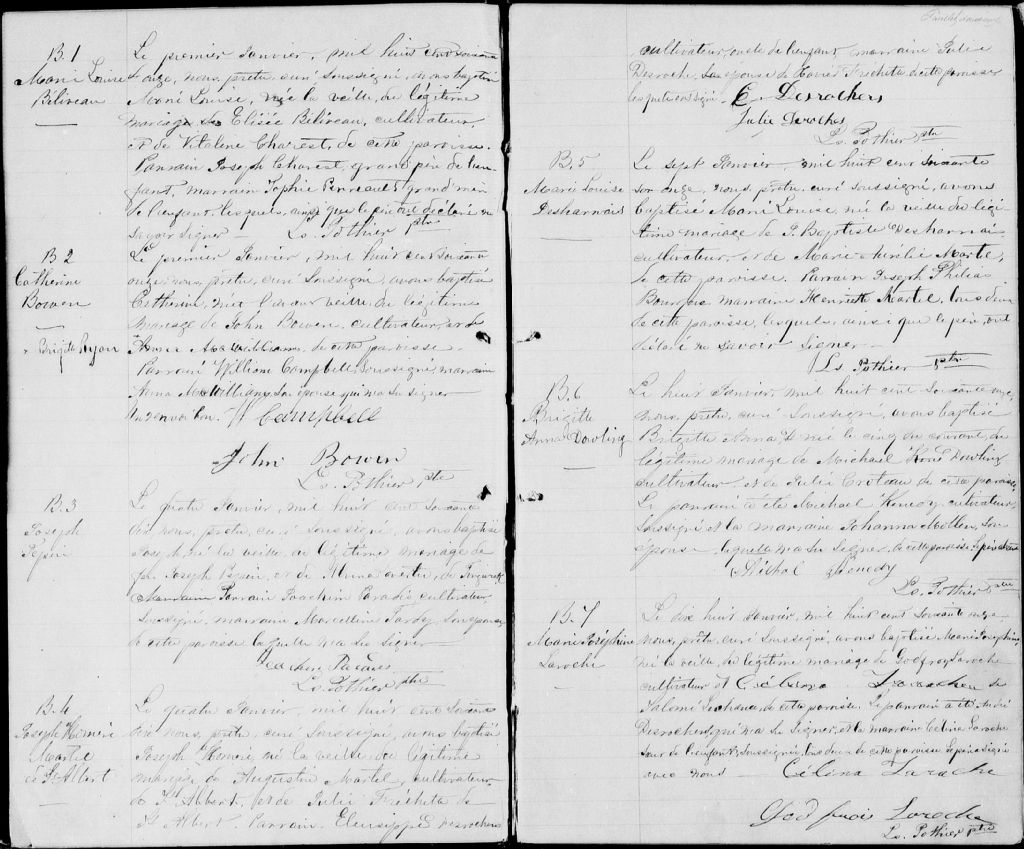 B. 1
Marie Louise
Béliveau
Le premier Janvier, mil huit cent soixante
et onze, nous, prêtre, curé soussigné, avons baptisé
Marie Louise, née la veille, du légitime
mariage de Elisée Béliveau, cultivateur,
et de Vitaline Charest, de cette paroisse.
Parrain Joseph Charest, grand père de l'en-
fant, marraine Sophie Perreault, grand mère
de l'enfant, lesquels, ainsi que le père ont déclaré ne
savoir signer Ls. Pothier ptre
B 2
Catherine
Bowen
Brigitte Ryan
Le premier Janvier, mil huit cent soixante
onze, nous, prêtre, curé, soussigné, avons baptisé
Catherine, née veille, du légitime
mariage de John Bowen, cultivateur, et de
Anna McWilliams, de cette paroisse.
Parrain William Campbell, soussigné, marraine
Anna McWilliams son épouse qui n'a su signer
W Campbell
John Bowen
Ls. Pothier ptre
B. 3
Joseph
Pépin
Le quatre Janvier, mil huit cent soixante
dix, nous, prêtre, curé soussigné, avons baptisé
Joseph, né la veille, du légitime mariage de
Joseph Pépin, et de de Tingwick
Parrain Joachim Paradis, cultivateur,
soussigné, marraine Marcelline Tardif, son épouse
de cette paroisse laquelle n'a su signer
Ls. Pothier ptre
B. 4
Joseph Honoré
Martel
de St Albert
Le quatre Janvier, mil huit cent soixante
dix, nous, prêtre, curé, soussigné, avons baptisé
Joseph Honoré, né la veille, du légitime
mariage de Augustin Martel, cultivateur
de St Albert, et de Julie Fréchette de
St Albert. Parrain Eleusippe Desrochers
cultivateur, oncle de l'enfant, marraine Julie
Desroche, son épouse de Xavier Fréchette de cette paroisse
lesquels ont signé. E. Desrochers
Julie Deroches
Ls. Pothier ptre
B. 5
Marie Louise
Desharnais
Le sept Janvier, mil huit cent soixante
onze, nous, prêtre, curé soussigné, avons
baptisé Marie Louise, née la veille du légi-
time mariage de J. Baptiste Desharnais
cultivateur, et de Marie Aurélie Martel,
de cette paroisse. Parrain Joseph Philias
Bourgeois marraine Henriette Martel, tous deux
de cette paroisse, lesquels, ainsi que le père, ont
déclaré ne savoir signer.
Ls Pothier Ptre
B. 6
Brigitte
Anna Dowling
Le huit Janvier, mil huit cent soixante onze,
nous, prêtre, curé soussigné, avons baptisé
Brigitte Anna, née le cinq du courant, du
légitime mariage de Michael Dowling
cultivateur, et de Julie Croteau de cette paroisse.
Le parrain a été Michael Kenedy, cultivateur,
soussigné et la marraine Johanna Mullen, son
épouse, laquelle n'a su signer, de cette paroisse. Le père absent
Michal Kenedy
Ls. Pothier ptre
B. 7
Marie Joséphine
Laroche
Le dix huit Janvier, mil huit cent soixante onze
nous, prêtre, curé soussigné, avons baptisé Marie Joséphine,
née la veille, du légitime mariage de Godfroy Laroche
cultivateur et de
Salomé de cette paroisse. Le parrain a été André
Desrochers qui n'a su signer, et la marraine Célina Laroche
sœur de l'enfant, soussignée, tous deux de cette paroisse. Le père a signé
avec nous Célina Laroche
God frois Laroche
Ls. Pothier Ptre